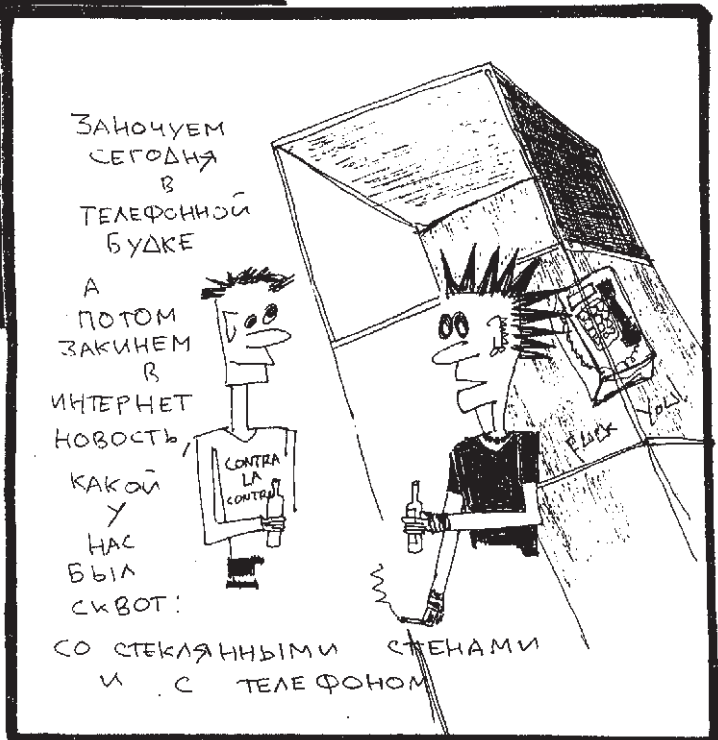 ЗАНОЧУЕМ
СЕГОДНЯ
В
ТЕЛЕФОННОЙ
БУДКЕ
А
ПОТОМ
ЗАКИНЕМ
В
ИНТЕРНЕТ
НОВОСТЬ,
КАКОЙ
У
НАС
БЫЛ
СКВОТ:
СО СТЕКЛЯННЫМИ СТЕНАМИ
И С ТЕЛЕФОНОМ
CONTRA
LA
CONTRA
FUCK YOU!